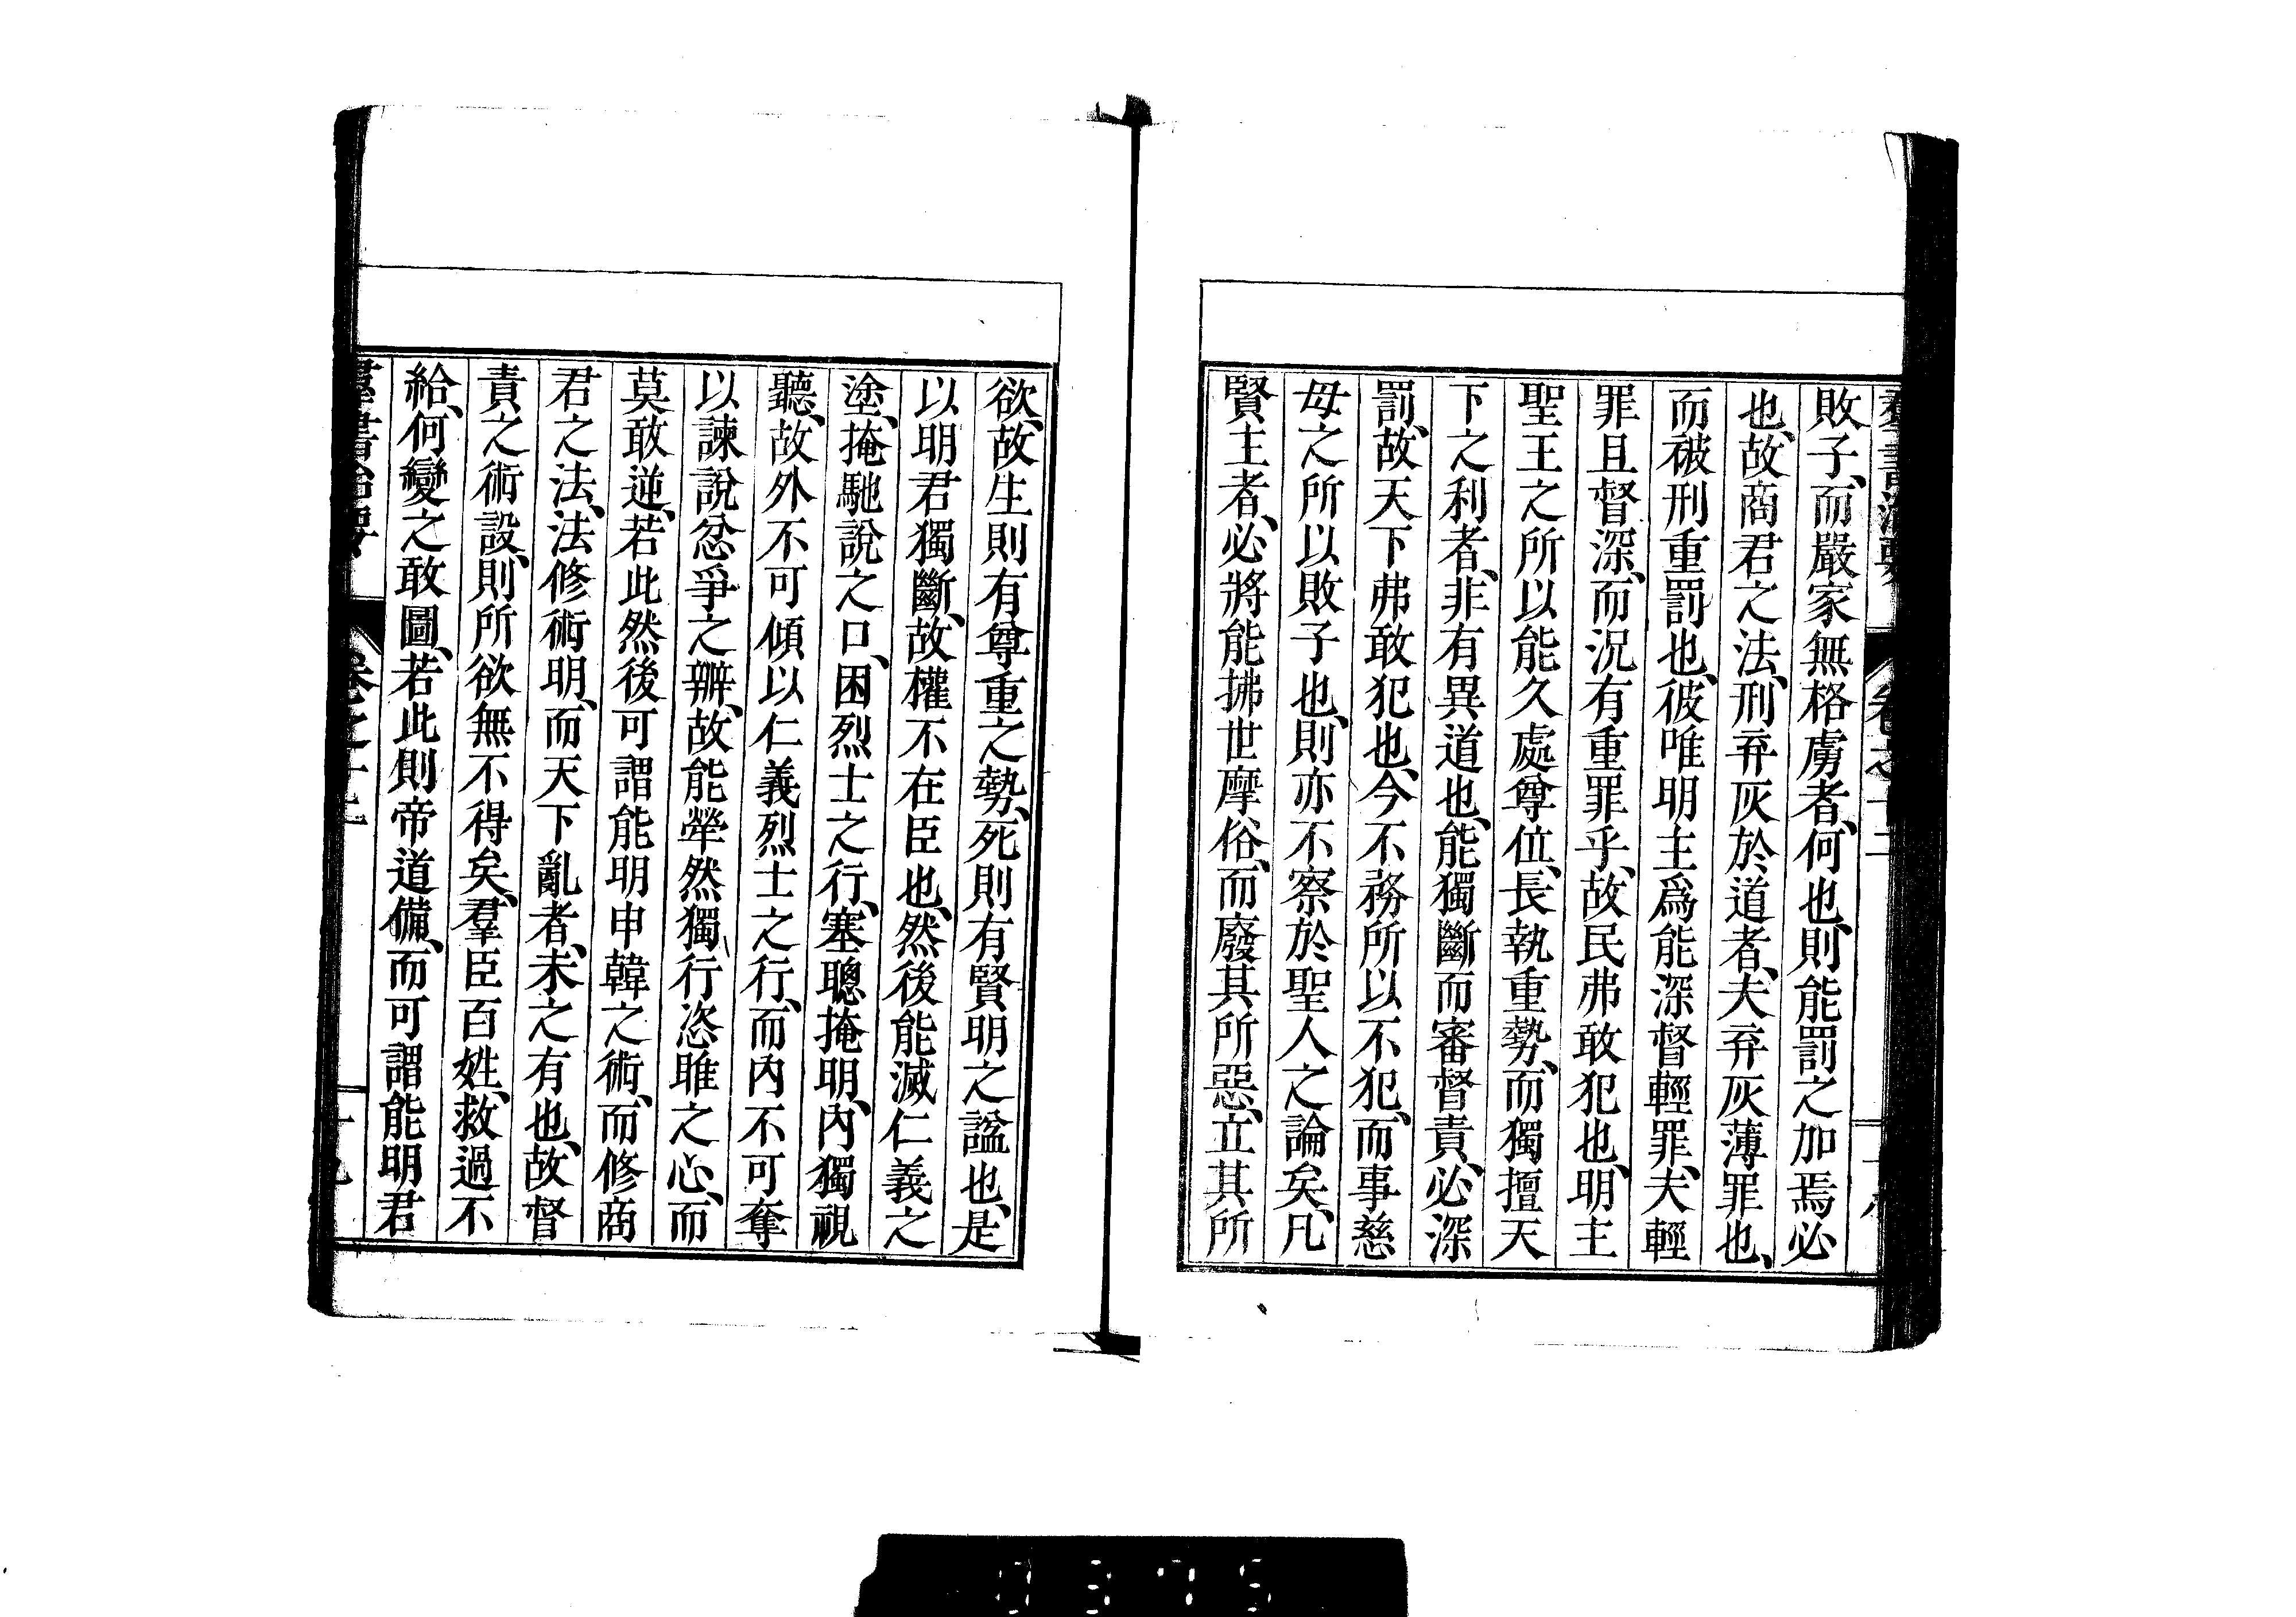 敗子、而嚴家無格虜者、何也、則能罰之加焉必
也、故商君之法、刑弃灰於道者、夫弃灰薄罪也、
而破刑重罰也、彼唯明主爲能深督輕罪、夫輕
罪且督深、而況有重罪乎、故民弗敢犯也、明主
聖王之所以能久處尊位、長執重勢、而獨擅天
下之利者、非有異道也、能獨斷而審督責、必深
罰、故天下弗敢犯也、今不務所以不犯、而事慈
母之所以敗子也、則亦不察於聖人之論矣、凡
賢主者、必將能拂世摩俗、而廢其所惡、立其所
欲、故生則有尊重之勢、死則有賢明之謚也、是
以明君獨斷、故權不在臣也、然後能滅仁義之
塗、掩馳說之口、困烈士之行、塞聰掩明、內獨視
聽、故外不可傾以仁義烈士之行、而內不可奪
以諫說忿爭之辯、故能犖然獨行恣睢之心、而
莫敢逆、若此然後可謂能明申韓之術、而修商
君之法、法修術明、而天下亂者、未之有也、故督
責之術設、則所欲無不得矣、羣臣百姓、救過不
給、何變之敢圖、若此則帝道備、而可謂能明君
羣書治要 卷之十二